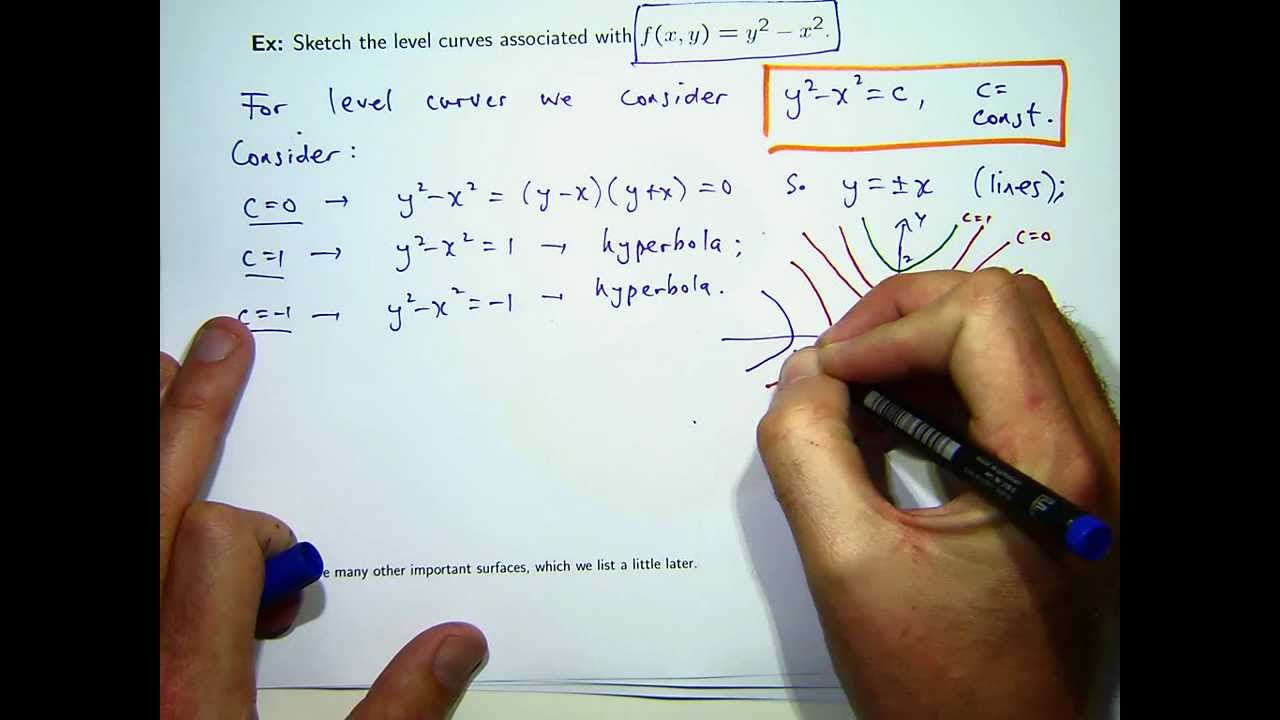 Ex: Sketch the level curves associated with f(x, y) = y² − x².
For level curves we consider y²−x² = c, c = const.
Consider:
c=0 → y²−x² = (y−x)(y+x) = 0 So y = ±x (lines);
c=1 → y²−x² = 1 → hyperbola;
c=−1 → y²−x² = −1 → hyperbola.
y c=1
c=0
2
e many other important surfaces, which we list a little later.